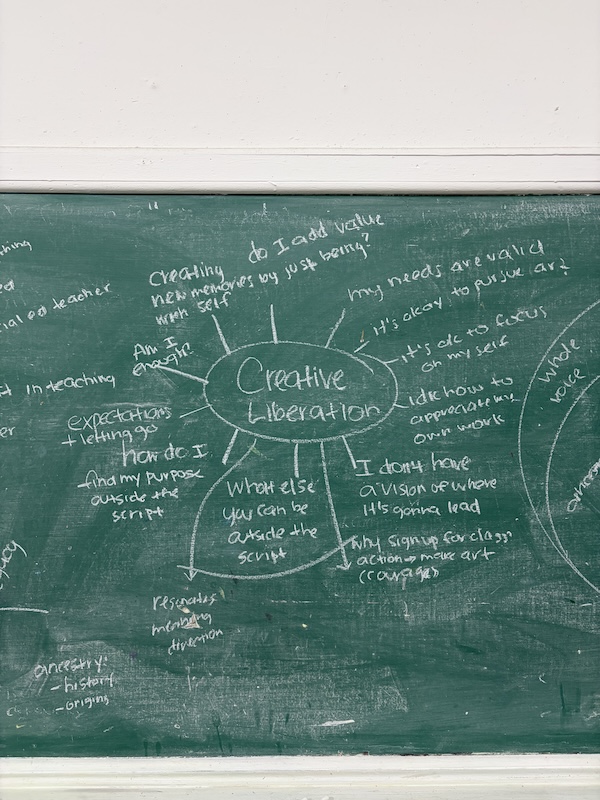 teacher
in teaching
do I add value
by just being?
Creating
new memories
with self
my needs are valid
It's okay to pursue art
it's ok to focus
on my self
Am I
enough?
Creative
Liberation
idk how to
appreciate my
own work
expectations
+ letting go
how do I
find my purpose
outside the
script
What else
you can be
outside the
script
I don't have
a vision of where
it's gonna lead
Why sign up for class
action → make art
(courage)
resonates
meaning
direction
ancestry:
- history
- origins
whole
voice